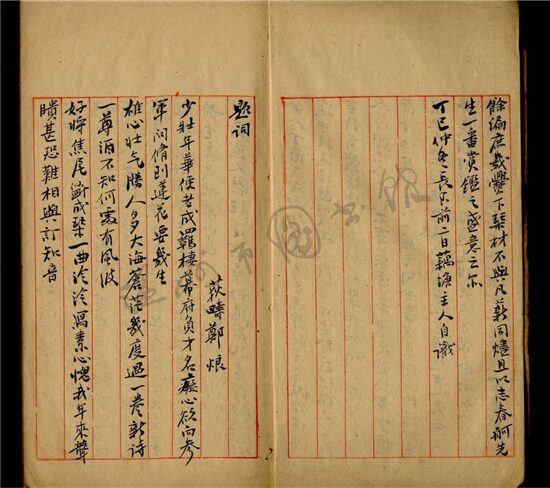 餘編庶幾爨下琴材不與凡薪同燼且以志春舸先
生一番賞鑑之盛意云尔
丁巳仲冬長至前二日藕塘主人自識
題詞
荻疇鄭烺
少壯年華便老成羈棲幕府負才名癡心欲向參
軍問脩到蓮花要幾生
雄心壯气勝人多大海蒼茫幾度過一卷新詩
一尊酒不知何處有風波
好將焦尾斲成琴一曲泠泠寫素心愧我年來聾
聵甚恐難相與訂知音
圖書館